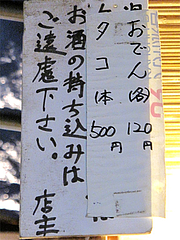 おでん各120円
タコ1本500円
お酒の持ち込みは
ご遠慮下さい。
店主